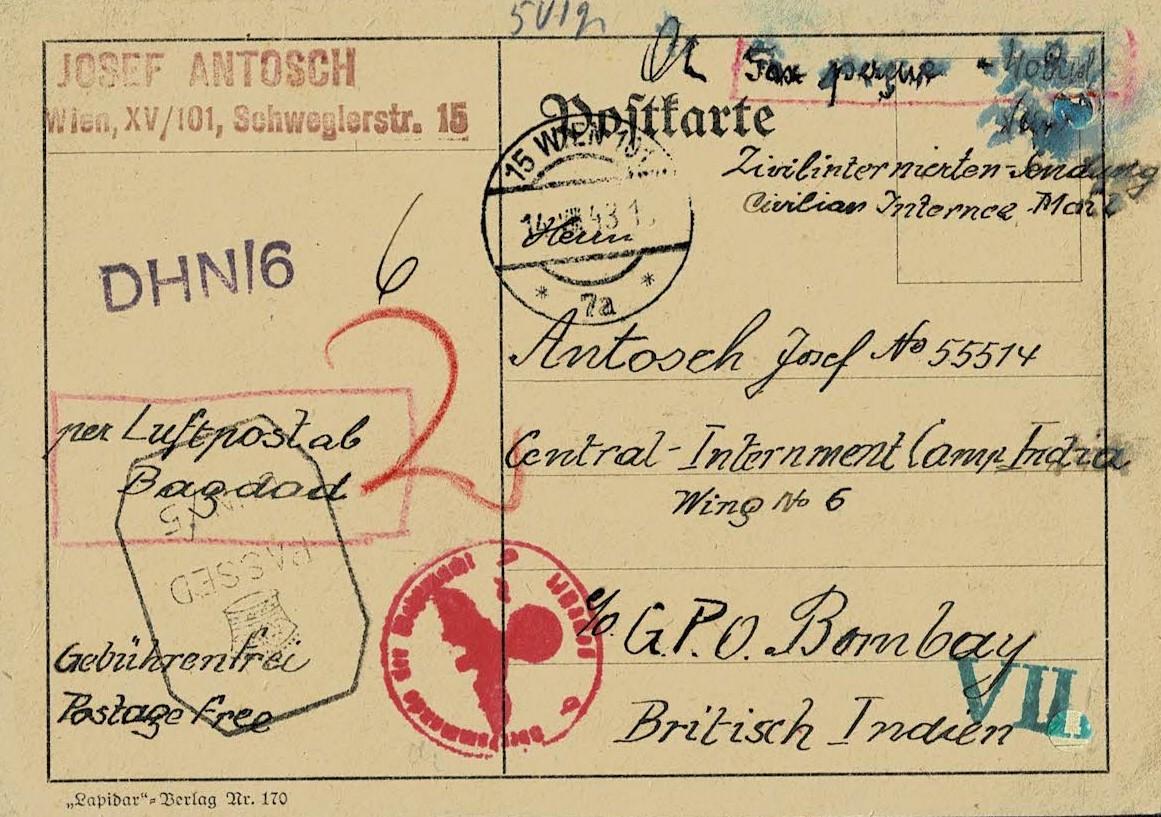 JOSEF ANTOSCH
Wien, XV/101, Schweglerstr. 15
Postkarte
15 WIEN 101
14. VIII 43
7a
Herrn
Zivilinternierten-Sendung
Civilian Internee Mail
DHN/6
6
2
Antosch Josef No 55514
per Luftpost ab
Bagdad
Central-Internment Camp India
Wing No 6
PASSED
c/o G.P.O. Bombay
Gebührenfrei
Postage Free
Britisch Indien
VII
„Lapidar“-Verlag Nr. 170